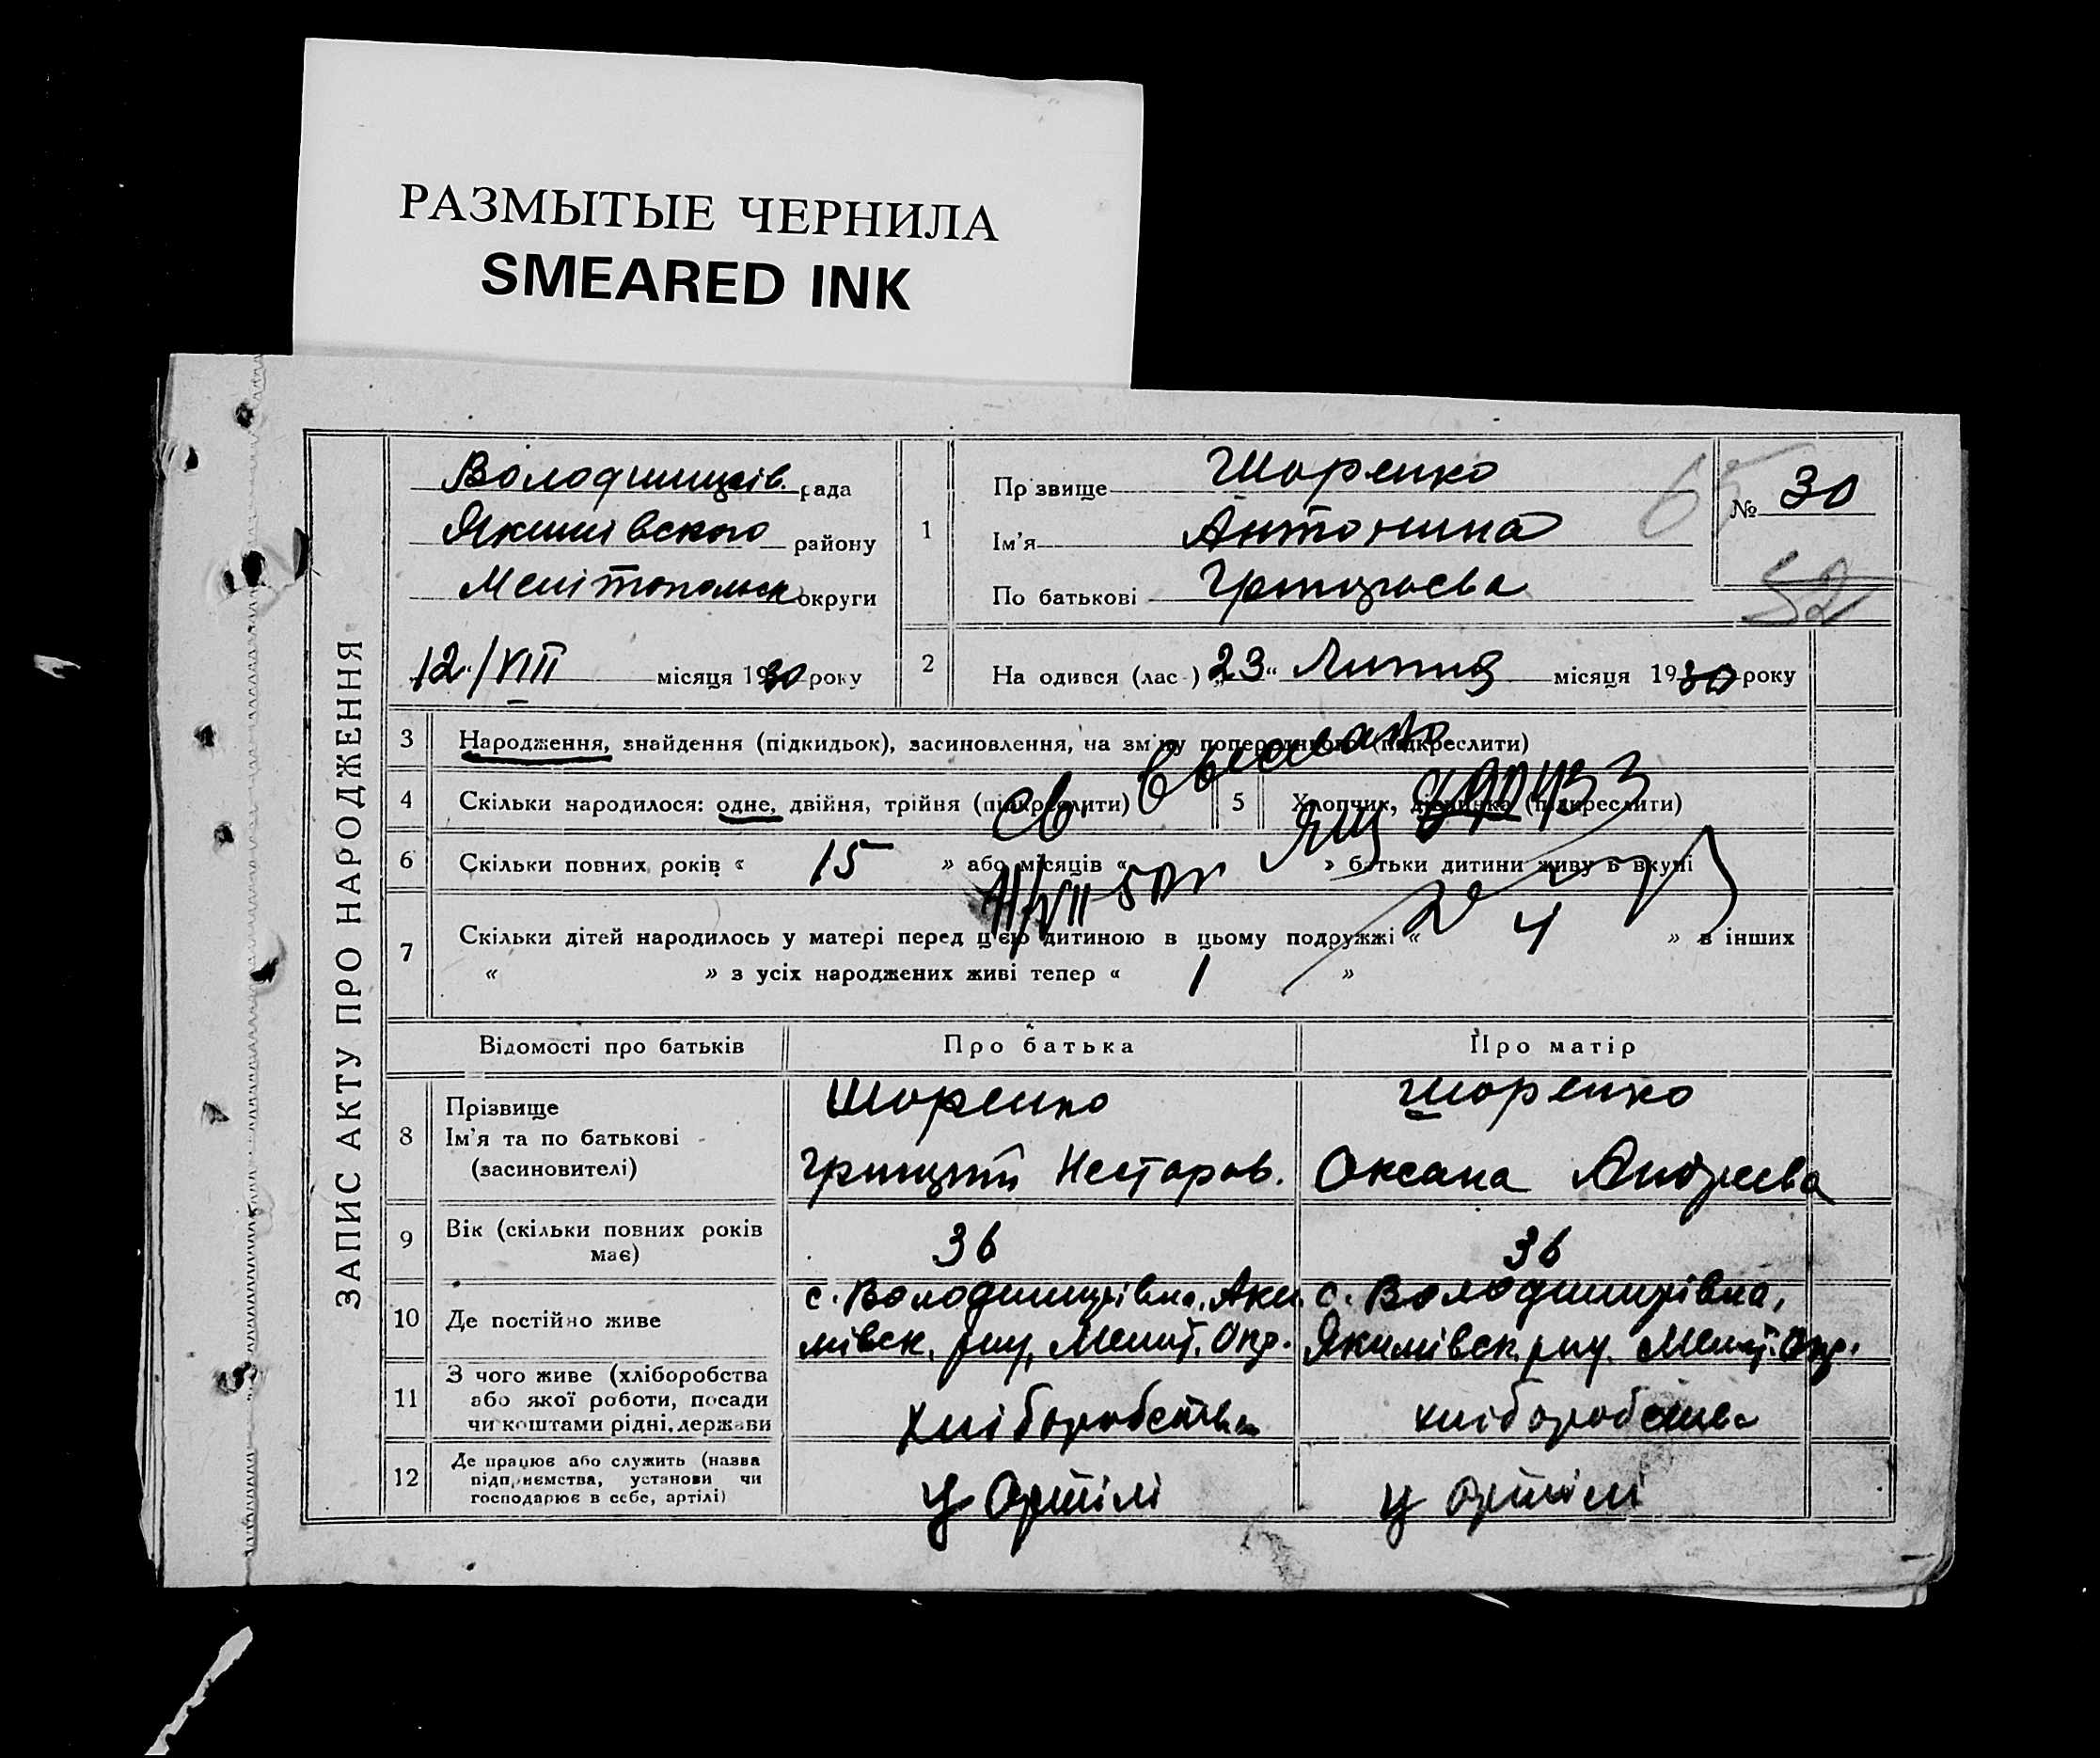 РАЗМЫТЫЕ ЧЕРНИЛА
SMEARED INK
ЗАПИС АКТУ ПРО НАРОДЖЕННЯ
рада
Якимівского району
Мелітопольск округи
12/VIII місяця 1930 року
1
Пр звище Шоренко
Ім'я Антонина
По батькові Грицьева
№ 30
65
52
2
На одився (лас ) „23“ Липня місяця 1930 року
3 Народження, знайдення (підкидьок), засиновлення, на зміну попереднього (підкреслити)
4 Скільки народилося: одне, двійня, трійня (підкреслити)
5 Хлопчик, дівчинка (підкреслити)
6 Скільки повних років « 15 » або місяців « » батьки дитини живуть вкупі
7 Скільки дітей народилось у матері перед цією дитиною в цьому подружжі « 4 » в інших
« » з усіх народжених живі тепер « 1 »
Відомості про батьків Про батька Про матір
8 Прізвище
Ім'я та по батькові
(засиновителі)
Шоренко
Грицько Несторов.
Шоренко
Оксана Андреева
9 Вік (скільки повних років
має)
36
36
10 Де постійно живе
с. Володимирівка, Аки
мівск. рну, Меліт. Окр.
с. Володимирівка,
Якимівск. рну. Меліт. Окр.
11 З чого живе (хліборобства
або якої роботи, посади
чи коштами рідні, держави
хліборобства
хліборобства
12 Де працює або служить (назва
підприємства, установи чи
господарює в себе, артілі)
у Артілі
у артілі